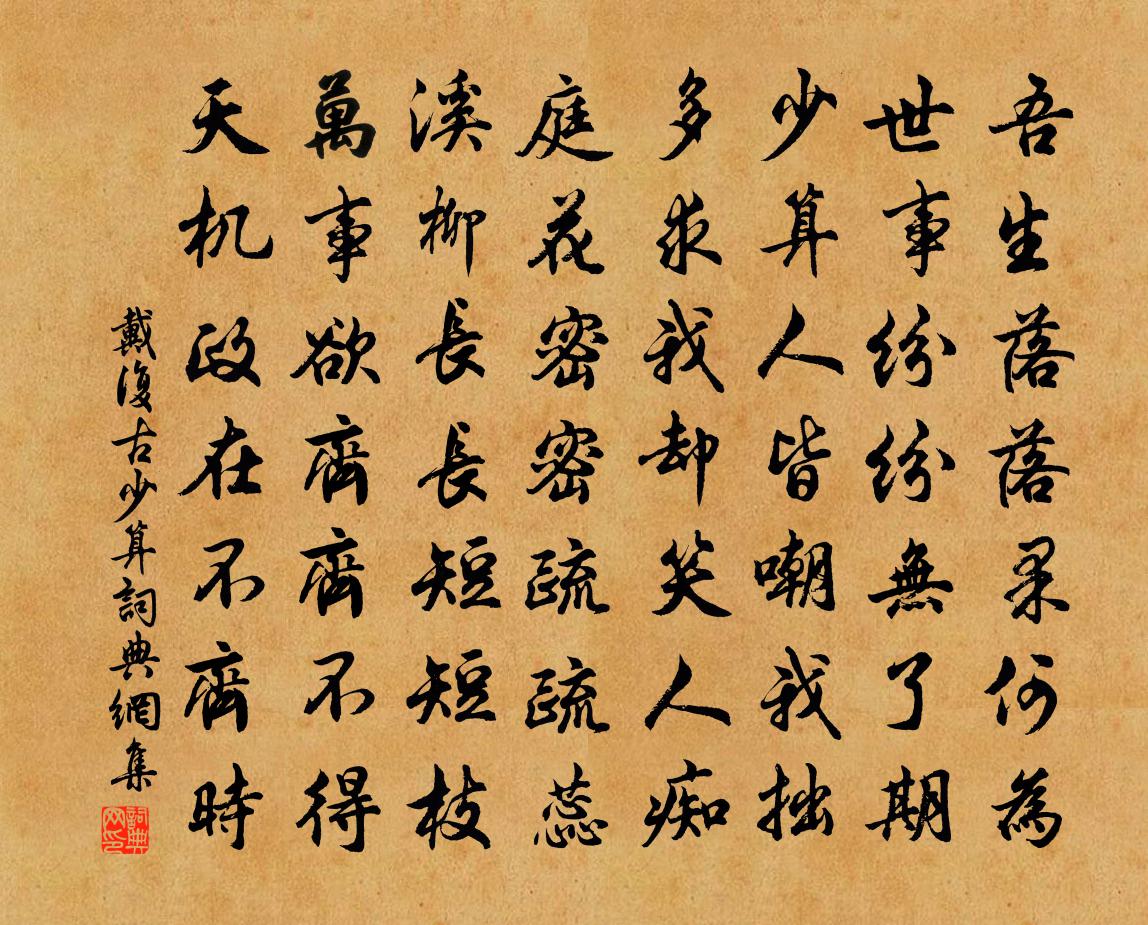 吾生落落果何為
世事紛紛無了期
少算人皆嘲我拙
多求我却笑人痴
庭花密密疏疏蕊
溪柳長長短短枝
萬事欲齊齊不得
天机政在不齊時
戴復古少算詞典網集
詞典网印